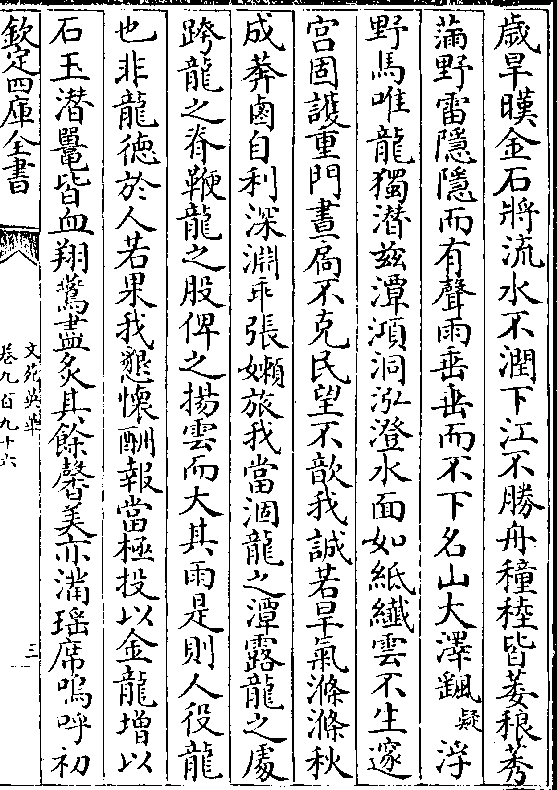 歲旱暵金石將流水不潤下江不勝舟穜稑皆萎稂莠
蒲野雷隱隱而有聲雨垂垂而不下名山大澤颻疑浮
野馬唯龍獨潛兹潭澒洞泓澄水面如紙纖雲不生邃
宫固護重門晝扃不克民望不歆我誠若旱氣滌滌秋
成莽鹵自利深淵乖張嬾旅我當涸龍之潭露龍之處
跨龍之脊鞭龍之股俾之揚雲而大其雨是則人役龍
也非龍徳於人若果我懇懷酬報當極投以金龍增以
石玉潜鼍皆血翔鷟盡炙其餘馨美亦滿瑶席嗚呼初
欽定四庫全書
文苑英華
卷九百九十六
三